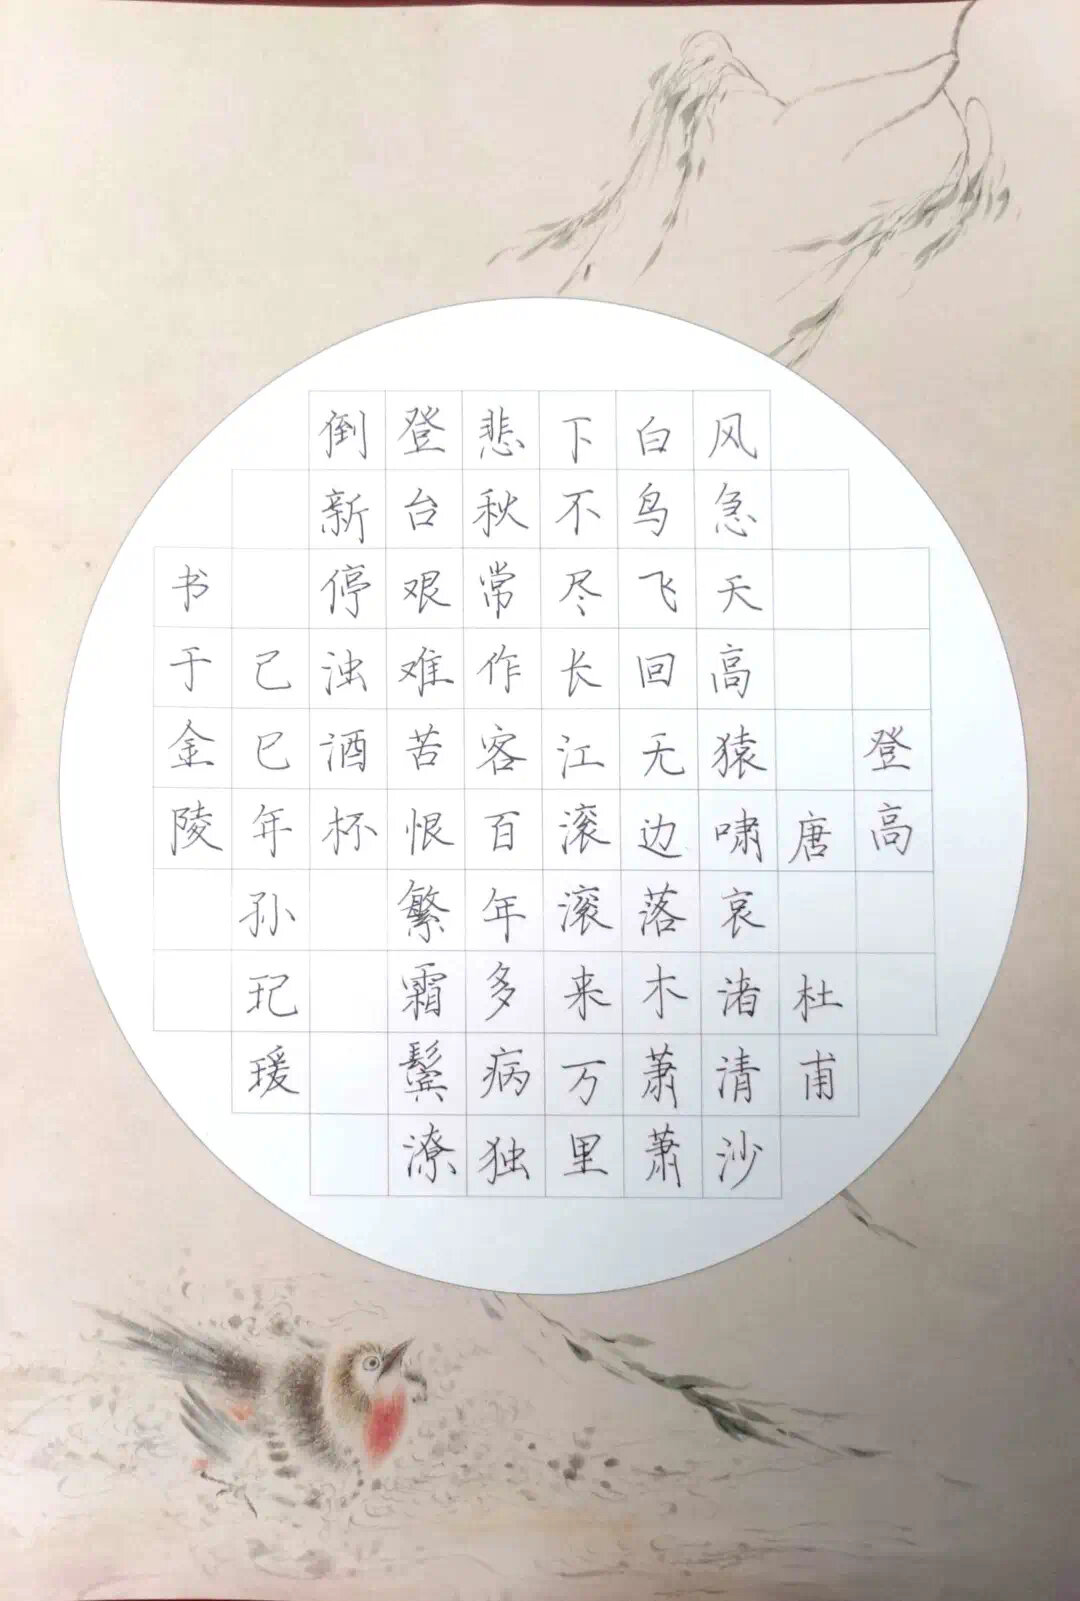 登高
唐 杜甫
风急天高猿啸哀渚清沙
白鸟飞回无边落木萧萧
下不尽长江滚滚来万里
悲秋常作客百年多病独
登台艰难苦恨繁霜鬓潦
倒新停浊酒杯
己巳年孙玘瑗
书于金陵